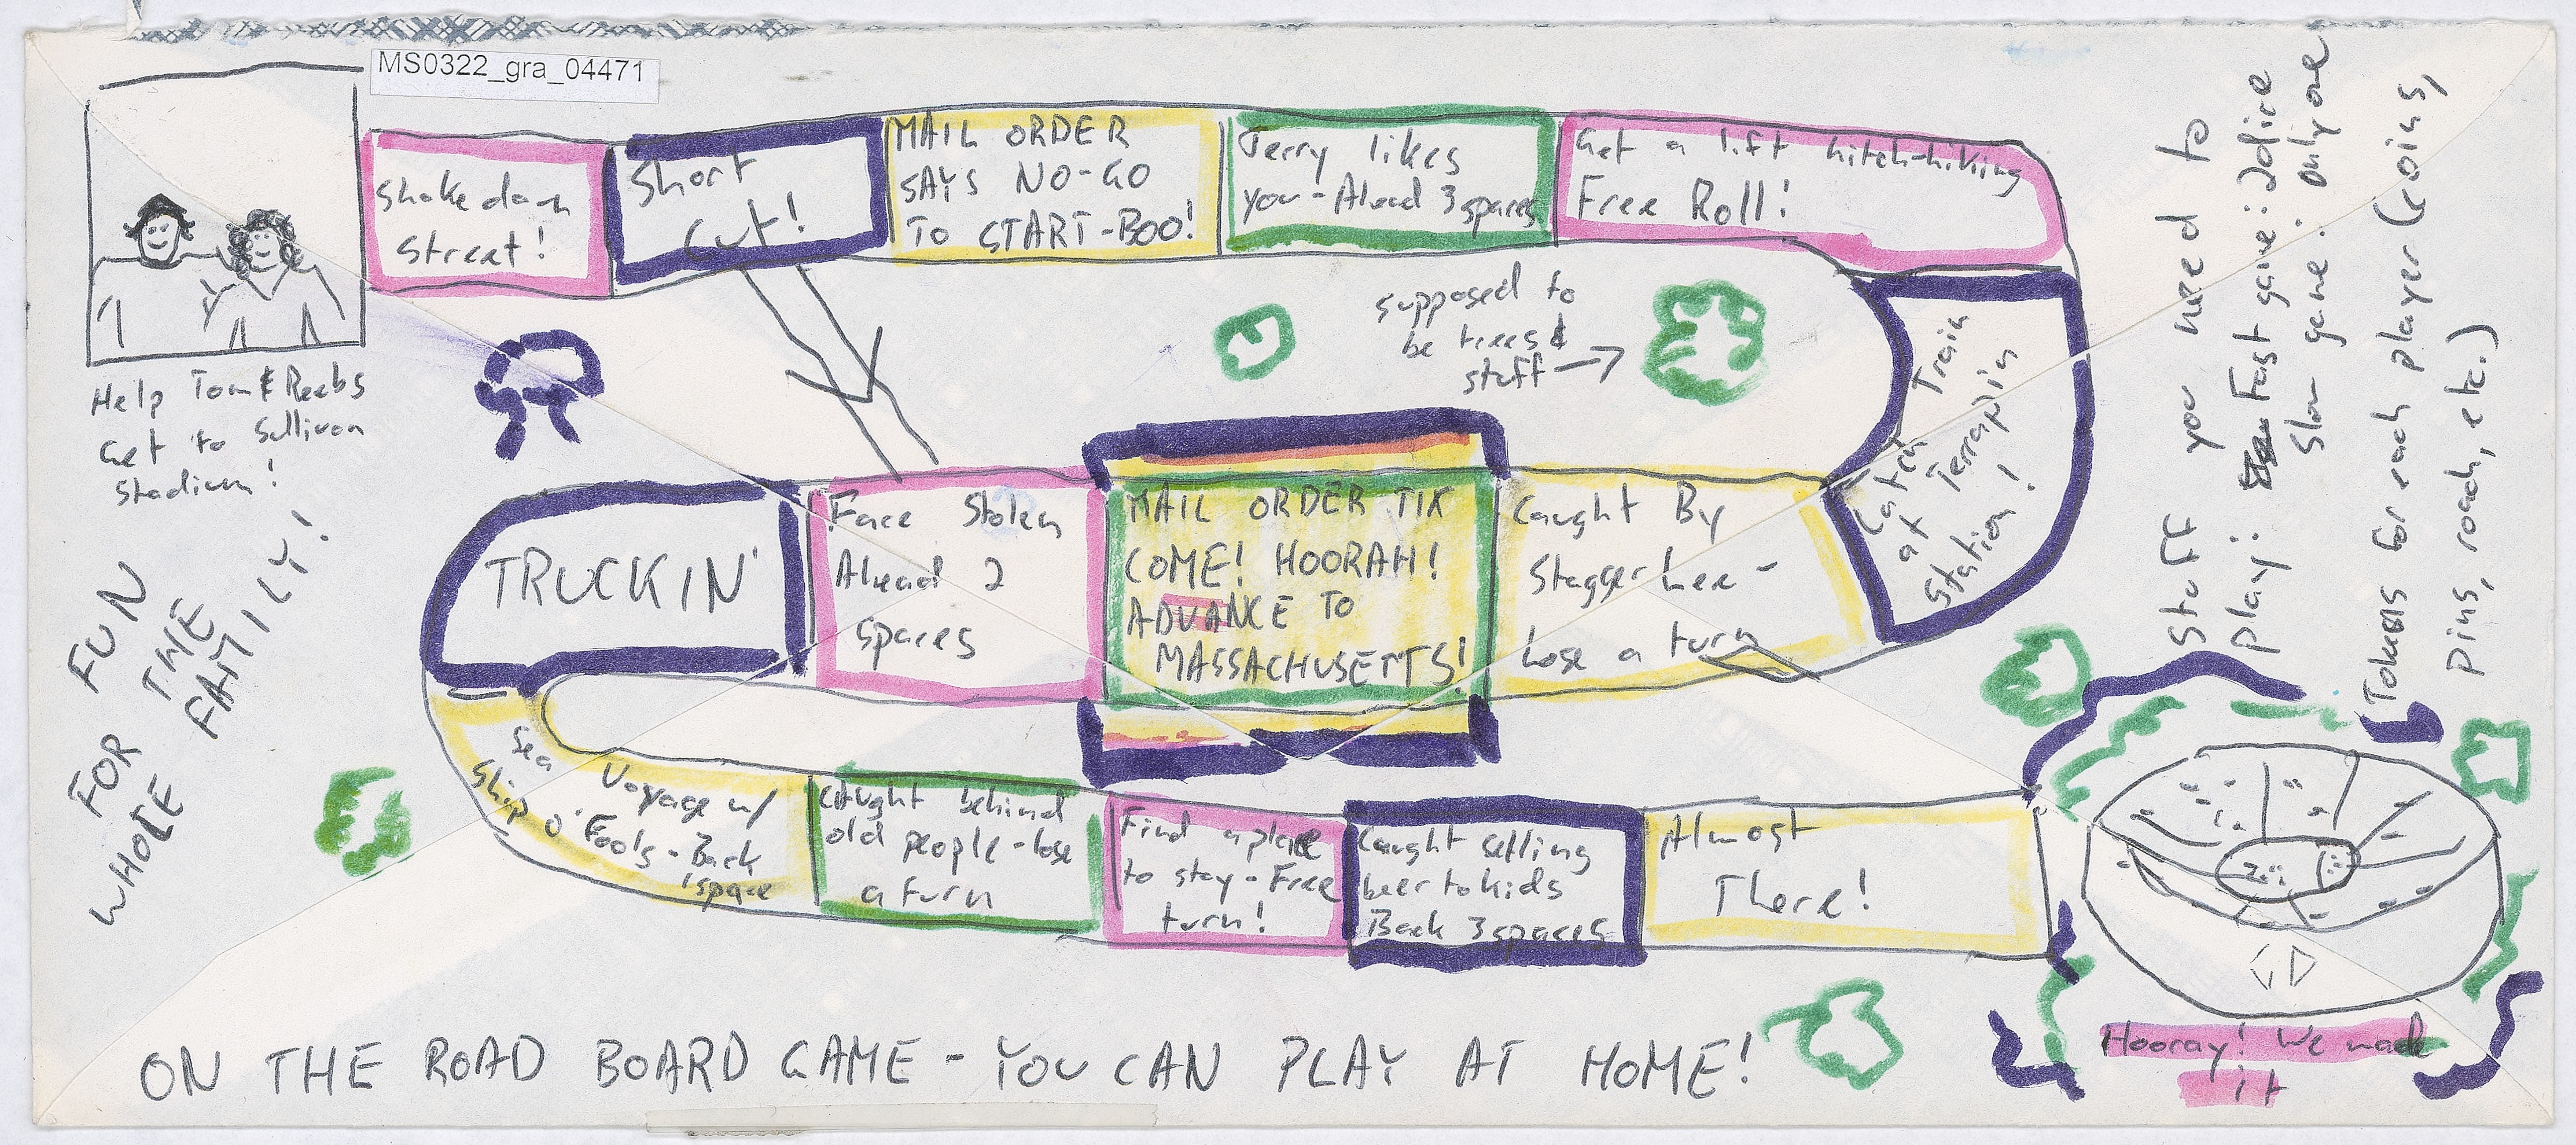 MS0322_gra_04471
Help Tom & Reebs
Get to Sullivan
Stadium!
FOR FUN
THE
WHOLE FAMILY!
Shakedown
Street!
Short
Cut!
MAIL ORDER
SAYS NO-GO
TO START-BOO!
Jerry likes
you-Ahead 3 spaces
Get a lift hitch-hiking
Free Roll!
Catch Train
at Terrapin
Station!
supposed to
be trees &
stuff
Caught By
Stagger Lee-
Lose a turn
MAIL ORDER TIX
COME! HOORAH!
ADVANCE TO
MASSACHUSETTS!
Face Stolen
Ahead 2
spaces
TRUCKIN'
Sea Voyage w/
Ship O' Fools-Back
1 space
Caught behind
old people-lose
a turn
Find a place
to stay-Free
turn!
Caught selling
beer to kids
Back 3 spaces
Almost
There!
Stuff you need to
play: Fast game: 2 dice
Slow game: only one
Tokens for each player (coins,
pins, roach, etc.)
GD
Hooray! We made
it
ON THE ROAD BOARD GAME - YOU CAN PLAY AT HOME!